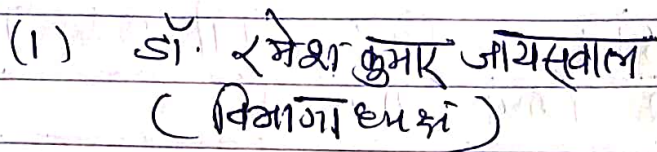 (1) डॉ. रमेश कुमार जायसवाल
( विभागाध्यक्ष )